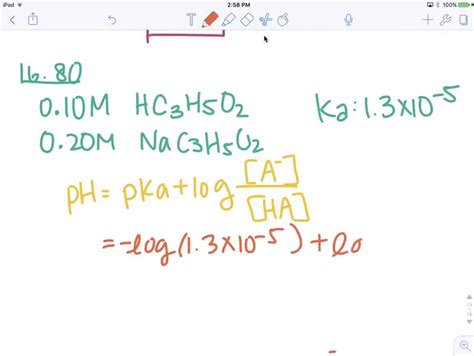 iPad
2:58 PM
100%
16.80
0.10M HC₃H₅O₂ Ka: 1.3×10⁻⁵
0.20M NaC₃H₅O₂
pH = pKa + log [A⁻]/[HA]
= -log(1.3×10⁻⁵) + lo